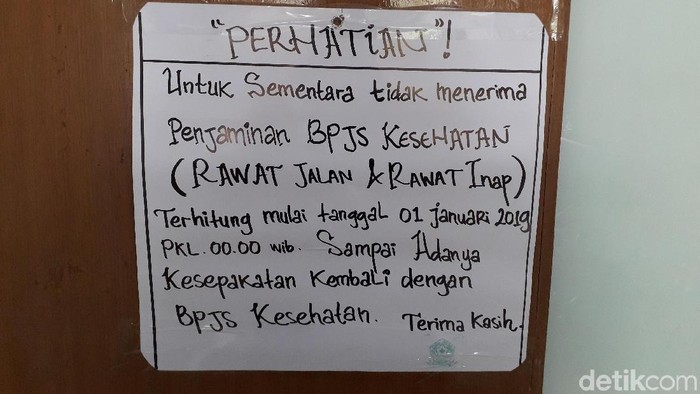 "PERHATIAN"!
Untuk Sementara tidak menerima
Penjaminan BPJS KESEHATAN
(RAWAT JALAN & RAWAT Inap)
Terhitung mulai tanggal 01 januari 2019
PKL. 00.00 wib. Sampai Adanya
Kesepakatan Kembali dengan
BPJS Kesehatan. Terima Kasih.
detikcom